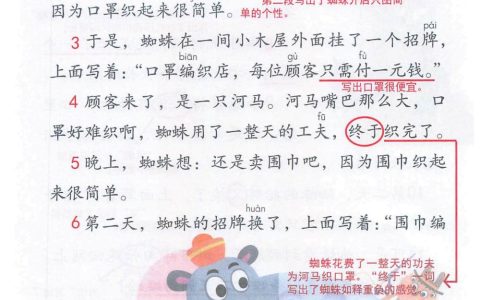 第二段写出了蜘蛛开店只图简
因为口罩织起来很简单。单的个性。
pái
3 于是，蜘蛛在一间小木屋外面挂了一个招牌，
biān gù fù
上面写着：“口罩编织店，每位顾客只需付一元钱。”
写出口罩很便宜。
4 顾客来了，是一只河马。河马嘴巴那么大，口
fū
罩好难织啊，蜘蛛用了一整天的工夫，终于织完了。
5 晚上，蜘蛛想：还是卖围巾吧，因为围巾织起
来很简单。
huàn
6 第二天，蜘蛛的招牌换了，上面写着：“围巾编
蜘蛛花费了一整天的功夫
为河马织口罩。“终于”一词
写出了蜘蛛如释重负的感觉。